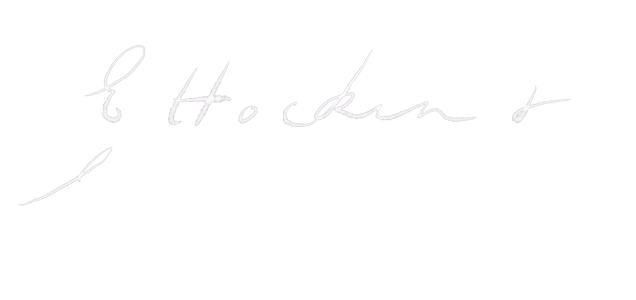 E Hockin